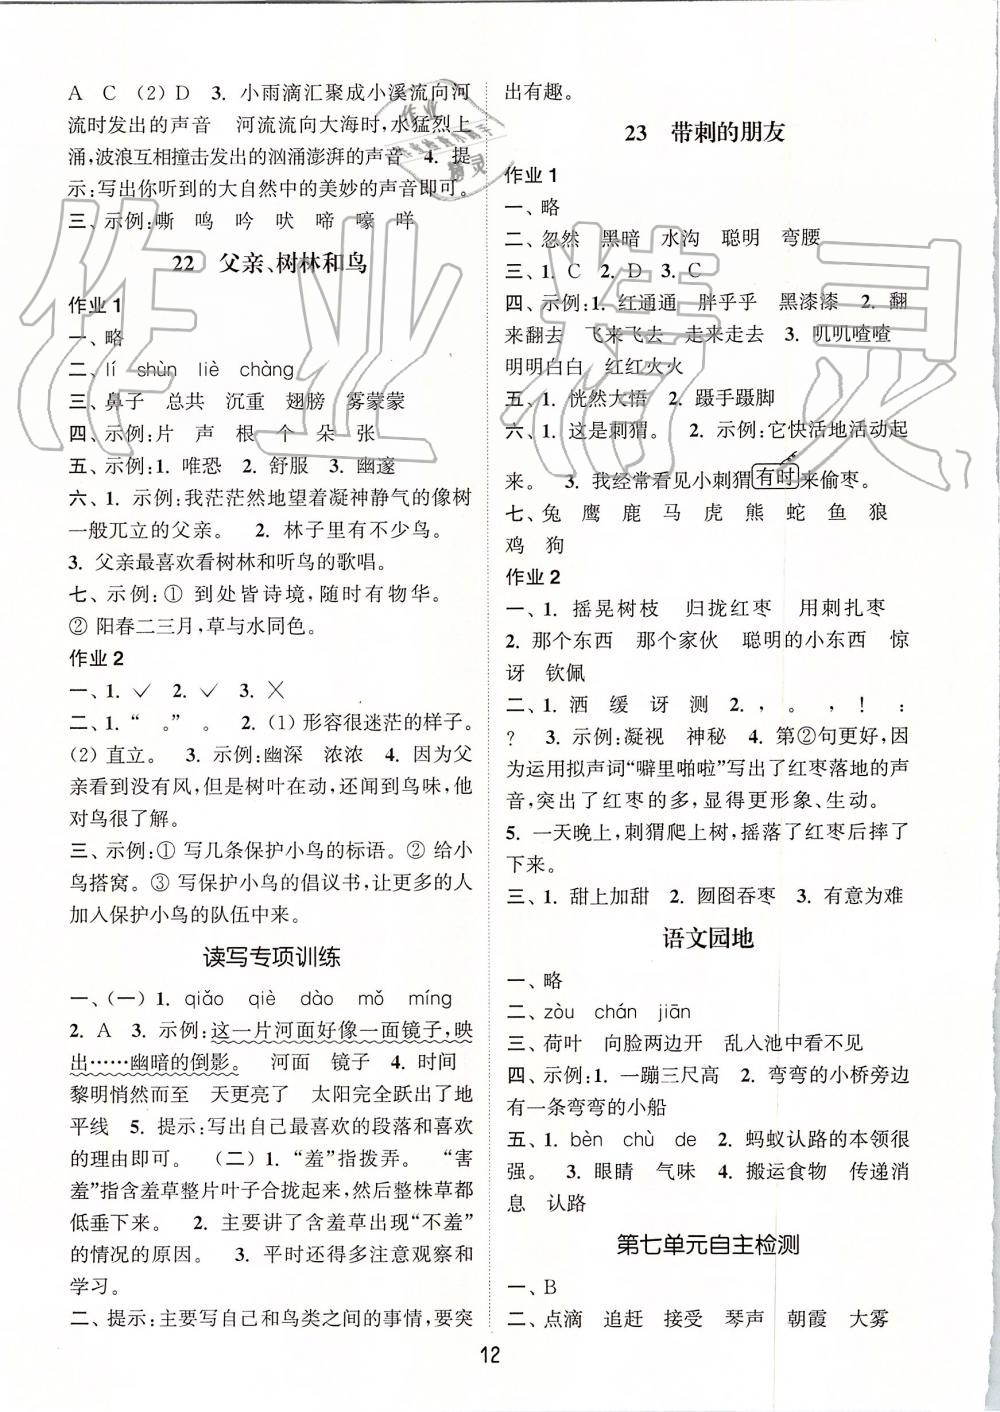 A C (2) D 3. 小雨滴汇聚成小溪流向河
流时发出的声音 河流流向大海时,水猛烈上
涌,波浪互相撞击发出的汹涌澎湃的声音 4. 提
示:写出你听到的大自然中的美妙的声音即可。
三、示例:嘶 鸣 吟 吠 啼 嚎 咩
22 父亲、树林和鸟
作业 1
一、略
二、lí shùn liè chàng
三、鼻子 总共 沉重 翅膀 雾蒙蒙
四、示例:片 声 根 个 朵 张
五、示例:1. 唯恐 2. 舒服 3. 幽邃
六、1. 示例:我茫茫然地望着凝神静气的像树
一般兀立的父亲。 2. 林子里有不少鸟。
3. 父亲最喜欢看树林和听鸟的歌唱。
七、示例:① 到处皆诗境,随时有物华。
② 阳春二三月,草与水同色。
作业 2
一、1. ✓ 2. ✓ 3. ✕
二、1. “ 。” 。 2. (1) 形容很迷茫的样子。
(2) 直立。 3. 示例:幽深 浓浓 4. 因为父
亲看到没有风,但是树叶在动,还闻到鸟味,他
对鸟很了解。
三、示例:① 写几条保护小鸟的标语。② 给小
鸟搭窝。③ 写保护小鸟的倡议书,让更多的人
加入保护小鸟的队伍中来。
读写专项训练
一、(一) 1. qiǎo qiè dào mǒ míng
2. A 3. 示例:这一片河面好像一面镜子,映
出……幽暗的倒影。 河面 镜子 4. 时间
黎明悄然而至 天更亮了 太阳完全跃出了地
平线 5. 提示:写出自己最喜欢的段落和喜欢
的理由即可。 (二) 1. “羞”指拨弄。 “害
羞”指含羞草整片叶子合拢起来,然后整株草都
低垂下来。 2. 主要讲了含羞草出现“不羞”
的情况的原因。 3. 平时还得多注意观察和
学习。
二、提示:主要写自己和鸟类之间的事情,要突
出有趣。
23 带刺的朋友
作业 1
一、略
二、忽然 黑暗 水沟 聪明 弯腰
三、1. C 2. D 3. C
四、示例:1. 红通通 胖乎乎 黑漆漆 2. 翻
来翻去 飞来飞去 走来走去 3. 叽叽喳喳
明明白白 红红火火
五、1. 恍然大悟 2. 蹑手蹑脚
六、1. 这是刺猬。 2. 示例:它快活地活动起
来。 3. 我经常看见小刺猬有时来偷枣。
七、兔 鹰 鹿 马 虎 熊 蛇 鱼 狼
鸡 狗
作业 2
一、1. 摇晃树枝 归拢红枣 用刺扎枣
2. 那个东西 那个家伙 聪明的小东西 惊
讶 钦佩
二、1. 洒 缓 讶 测 2. , 。 , ! :
? 3. 示例:凝视 神秘 4. 第②句更好,因
为运用拟声词“噼里啪啦”写出了红枣落地的声
音,突出了红枣的多,显得更形象、生动。
5. 一天晚上,刺猬爬上树,摇落了红枣后摔了
下来。
三、1. 甜上加甜 2. 囫囵吞枣 3. 有意为难
语文园地
一、略
二、zòu chán jiān
三、荷叶 向脸两边开 乱入池中看不见
四、示例:1. 一蹦三尺高 2. 弯弯的小桥旁边
有一条弯弯的小船
五、1. bèn chù de 2. 蚂蚁认路的本领很
强。 3. 眼睛 气味 4. 搬运食物 传递消
息 认路
第七单元自主检测
一、B
二、点滴 追赶 接受 琴声 朝霞 大雾
12
作业精灵